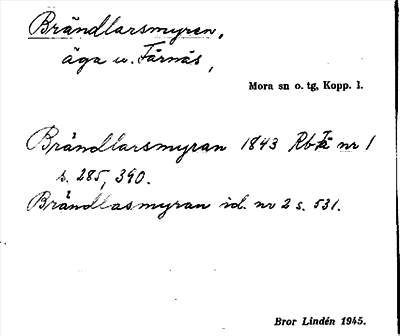 Brändlarsmyren,
äga u. Färnäs,
Mora sn o. tg, Kopp. l.
Brändlarsmyran 1843 RbFä nr 1
s. 285, 390.
Brändlasmyran id. nr 2 s. 531.
Bror Lindén 1945.